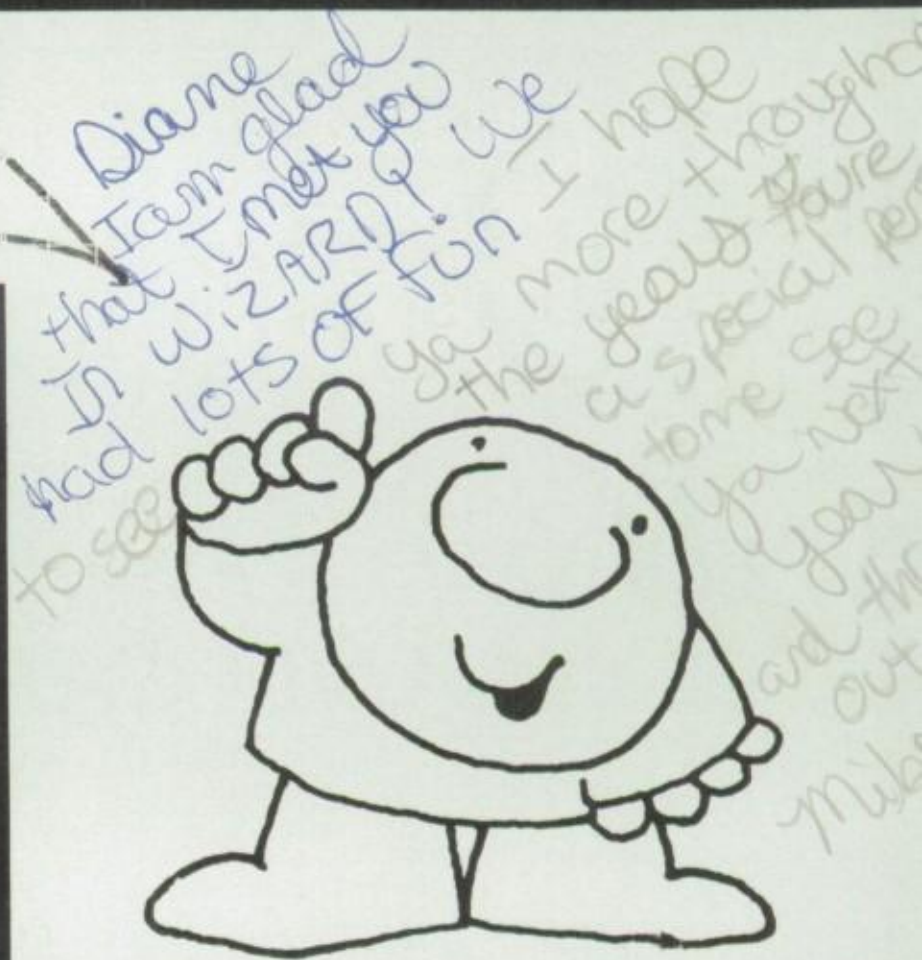 Diane
I am glad
that I met you
In WiZARD! We
had lots of fun
I hope
to see
ya more
the years Youre
a special
to me see
ya next
year
and
out